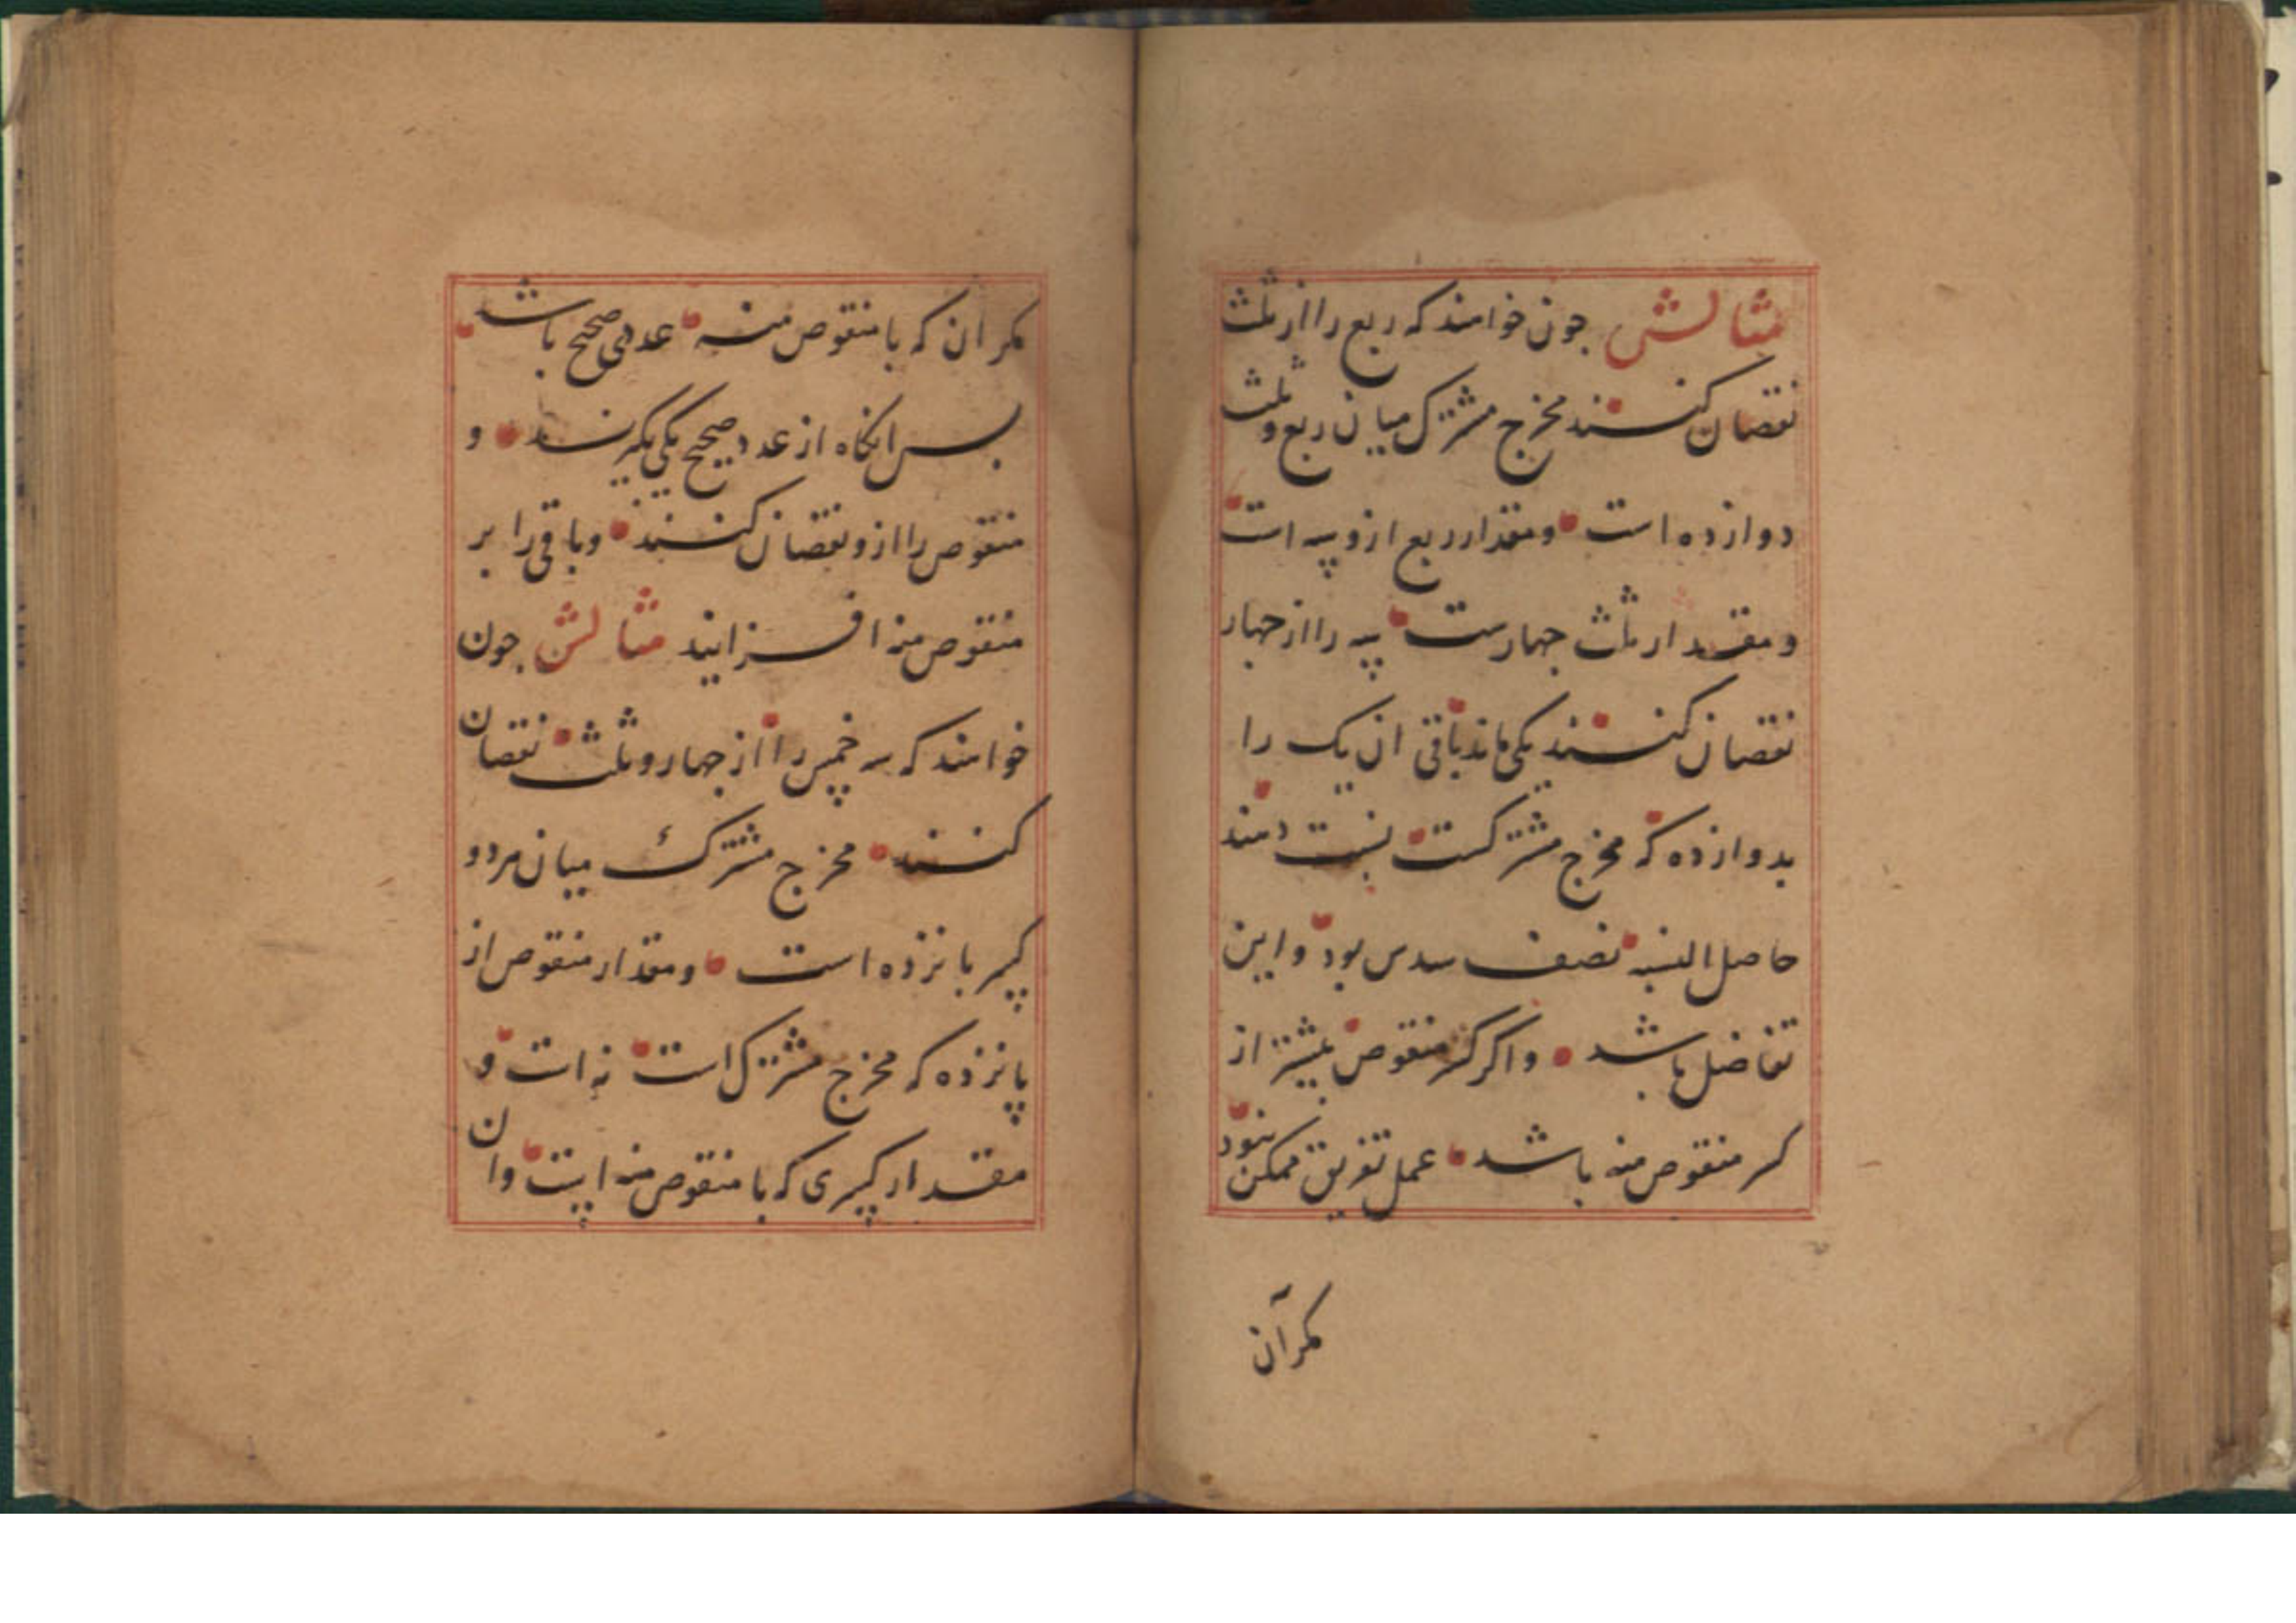 مثالش جون خواهند که ربع را از ثلث
نقصان کنند مخرج مشترک میان ربع و ثلث
دوازده است و مقدار ربع ازو سه است
و مقدار ثلث جهارست سه را از جهار
نقصان کنند یکی ماند باقی ان یک را
بدوازده که مخرج مشترکست نسبت دهند
حاصل النسبه نصف سدس بود و این
تفاضل باشد و اگر کسر منقوص بیشتر از
کسر منقوص منه باشد عمل تفریق ممکن نبود
مکر آن
مکر ان که با منقوص منه عددی صحیح باشد
بس انکاه از عدد صحیح یکی بکیرند و
منقوص را ازو نقصان کنند و باقی را بر
منقوص منه افزایند مثالش جون
خواهند که سه خمس را از جهار و ثلث نقصان
کنند مخرج مشترک میان هر دو
کسر بانزده است و مقدار منقوص از
پانزده که مخرج مشترک است نه است و
مقدار کسری که با منقوص منه است و ان